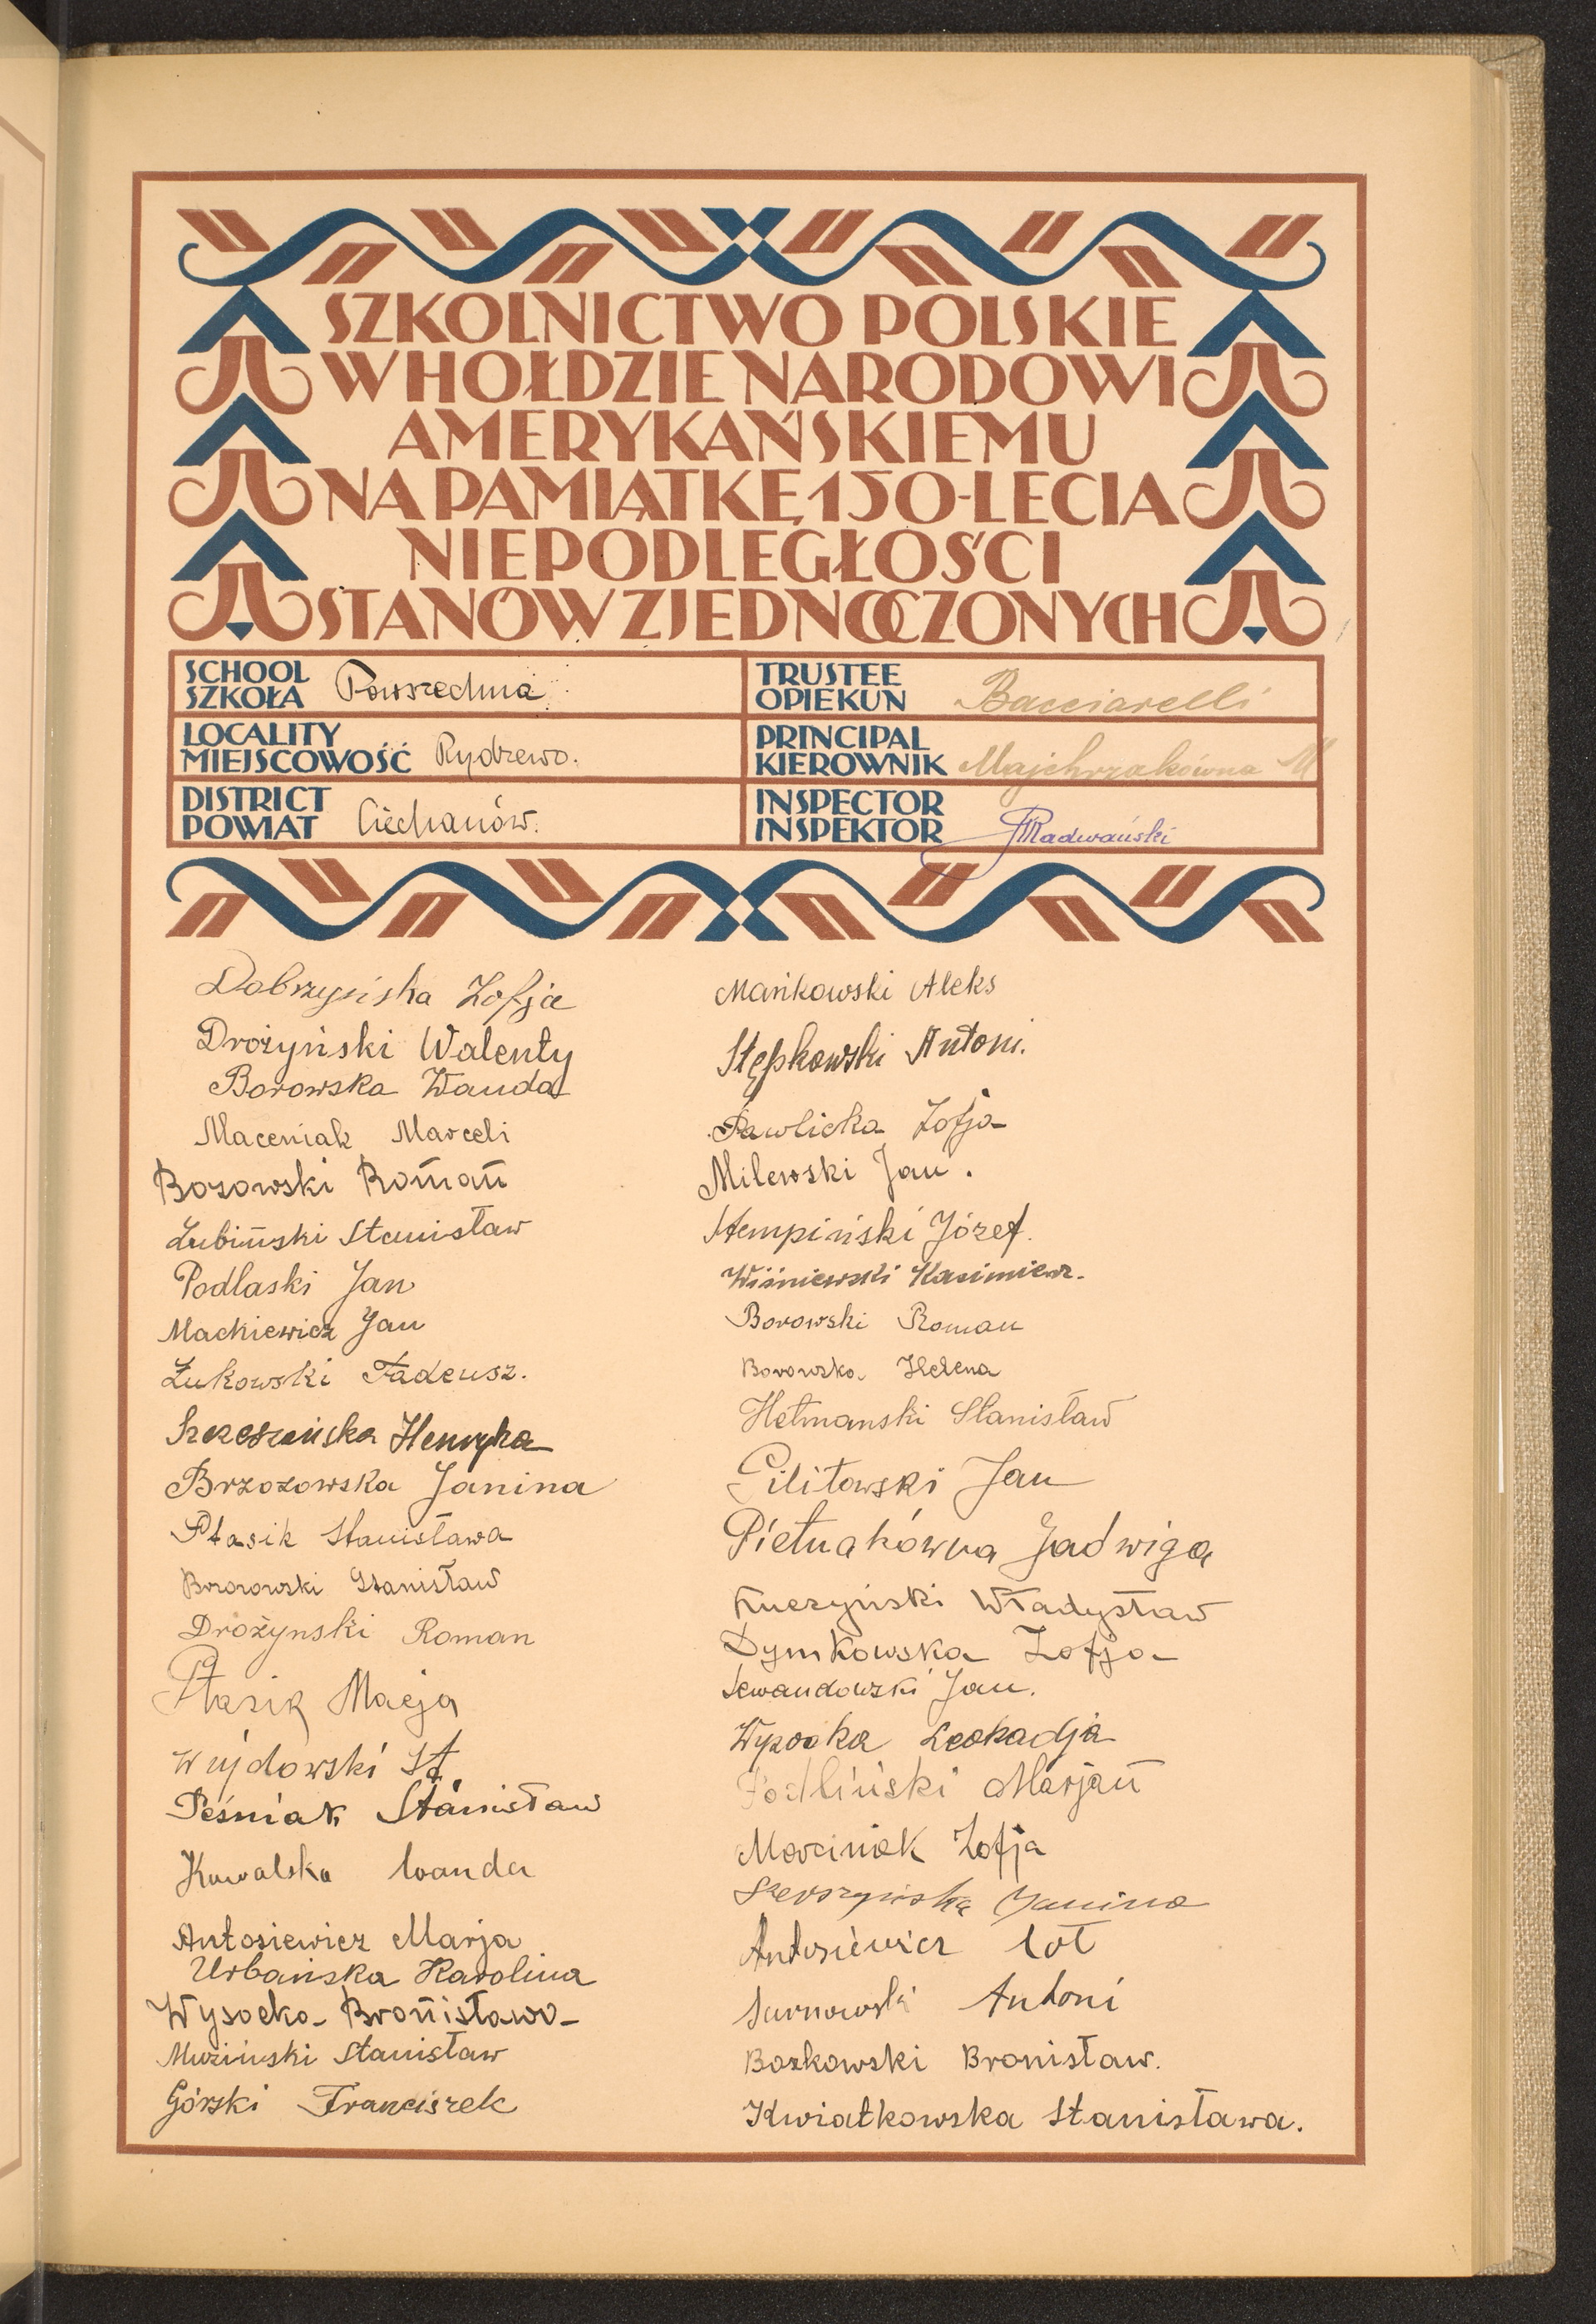 SZKOLNICTWO POLSKIE
W HOŁDZIE NARODOWI
AMERYKAŃSKIEMU
NA PAMIĄTKĘ 150-LECIA
NIEPODLEGŁOŚCI
STANÓW ZJEDNOCZONYCH
SCHOOL
SZKOŁA Powszechna
TRUSTEE
OPIEKUN Bacciarelli
LOCALITY
MIEJSCOWOŚĆ Rydzewo.
PRINCIPAL
KIEROWNIK Majchrzakówna M
DISTRICT
POWIAT Ciechanów.
INSPECTOR
INSPEKTOR Radwański
Dobrzyńska Zofja
Drożyński Walenty
Borowska Wanda
Maceniak Marceli
Borowski Roman
Łubiński Stanisław
Podlaski Jan
Mackiewicz Jan
Żukowski Tadeusz.
Henryka
Brzozowska Janina
Ptasik Stanisława
Stanisław
Drożynski Roman
Ptasik Marja
Wujdowski St.
Peśniak Stanisław
Kowalska Wanda
Antosiewicz Marja
Urbańska Karolina
Wysocka Bronisława
Muziński Stanisław
Górski Franciszek
Mańkowski Aleks
Stępkowski Antoni.
Pawlicka Zofja
Milewski Jan.
Stempiński Józef.
Wiśniewski Kazimierz.
Borowski Roman
Borowska Helena
Hetmanski Stanisław
Gilitowski Jan
Pietnakówna Jadwiga
Kuczyński Władysław
Dymkowska Zofja
Lewandowski Jan.
Wysocka Leokadja
Podliński Marjan
Marciniak Zofja
Janina
Antosiewicz
Surnowski Antoni
Boskowski Bronisław.
Kwiatkowska Stanisława.